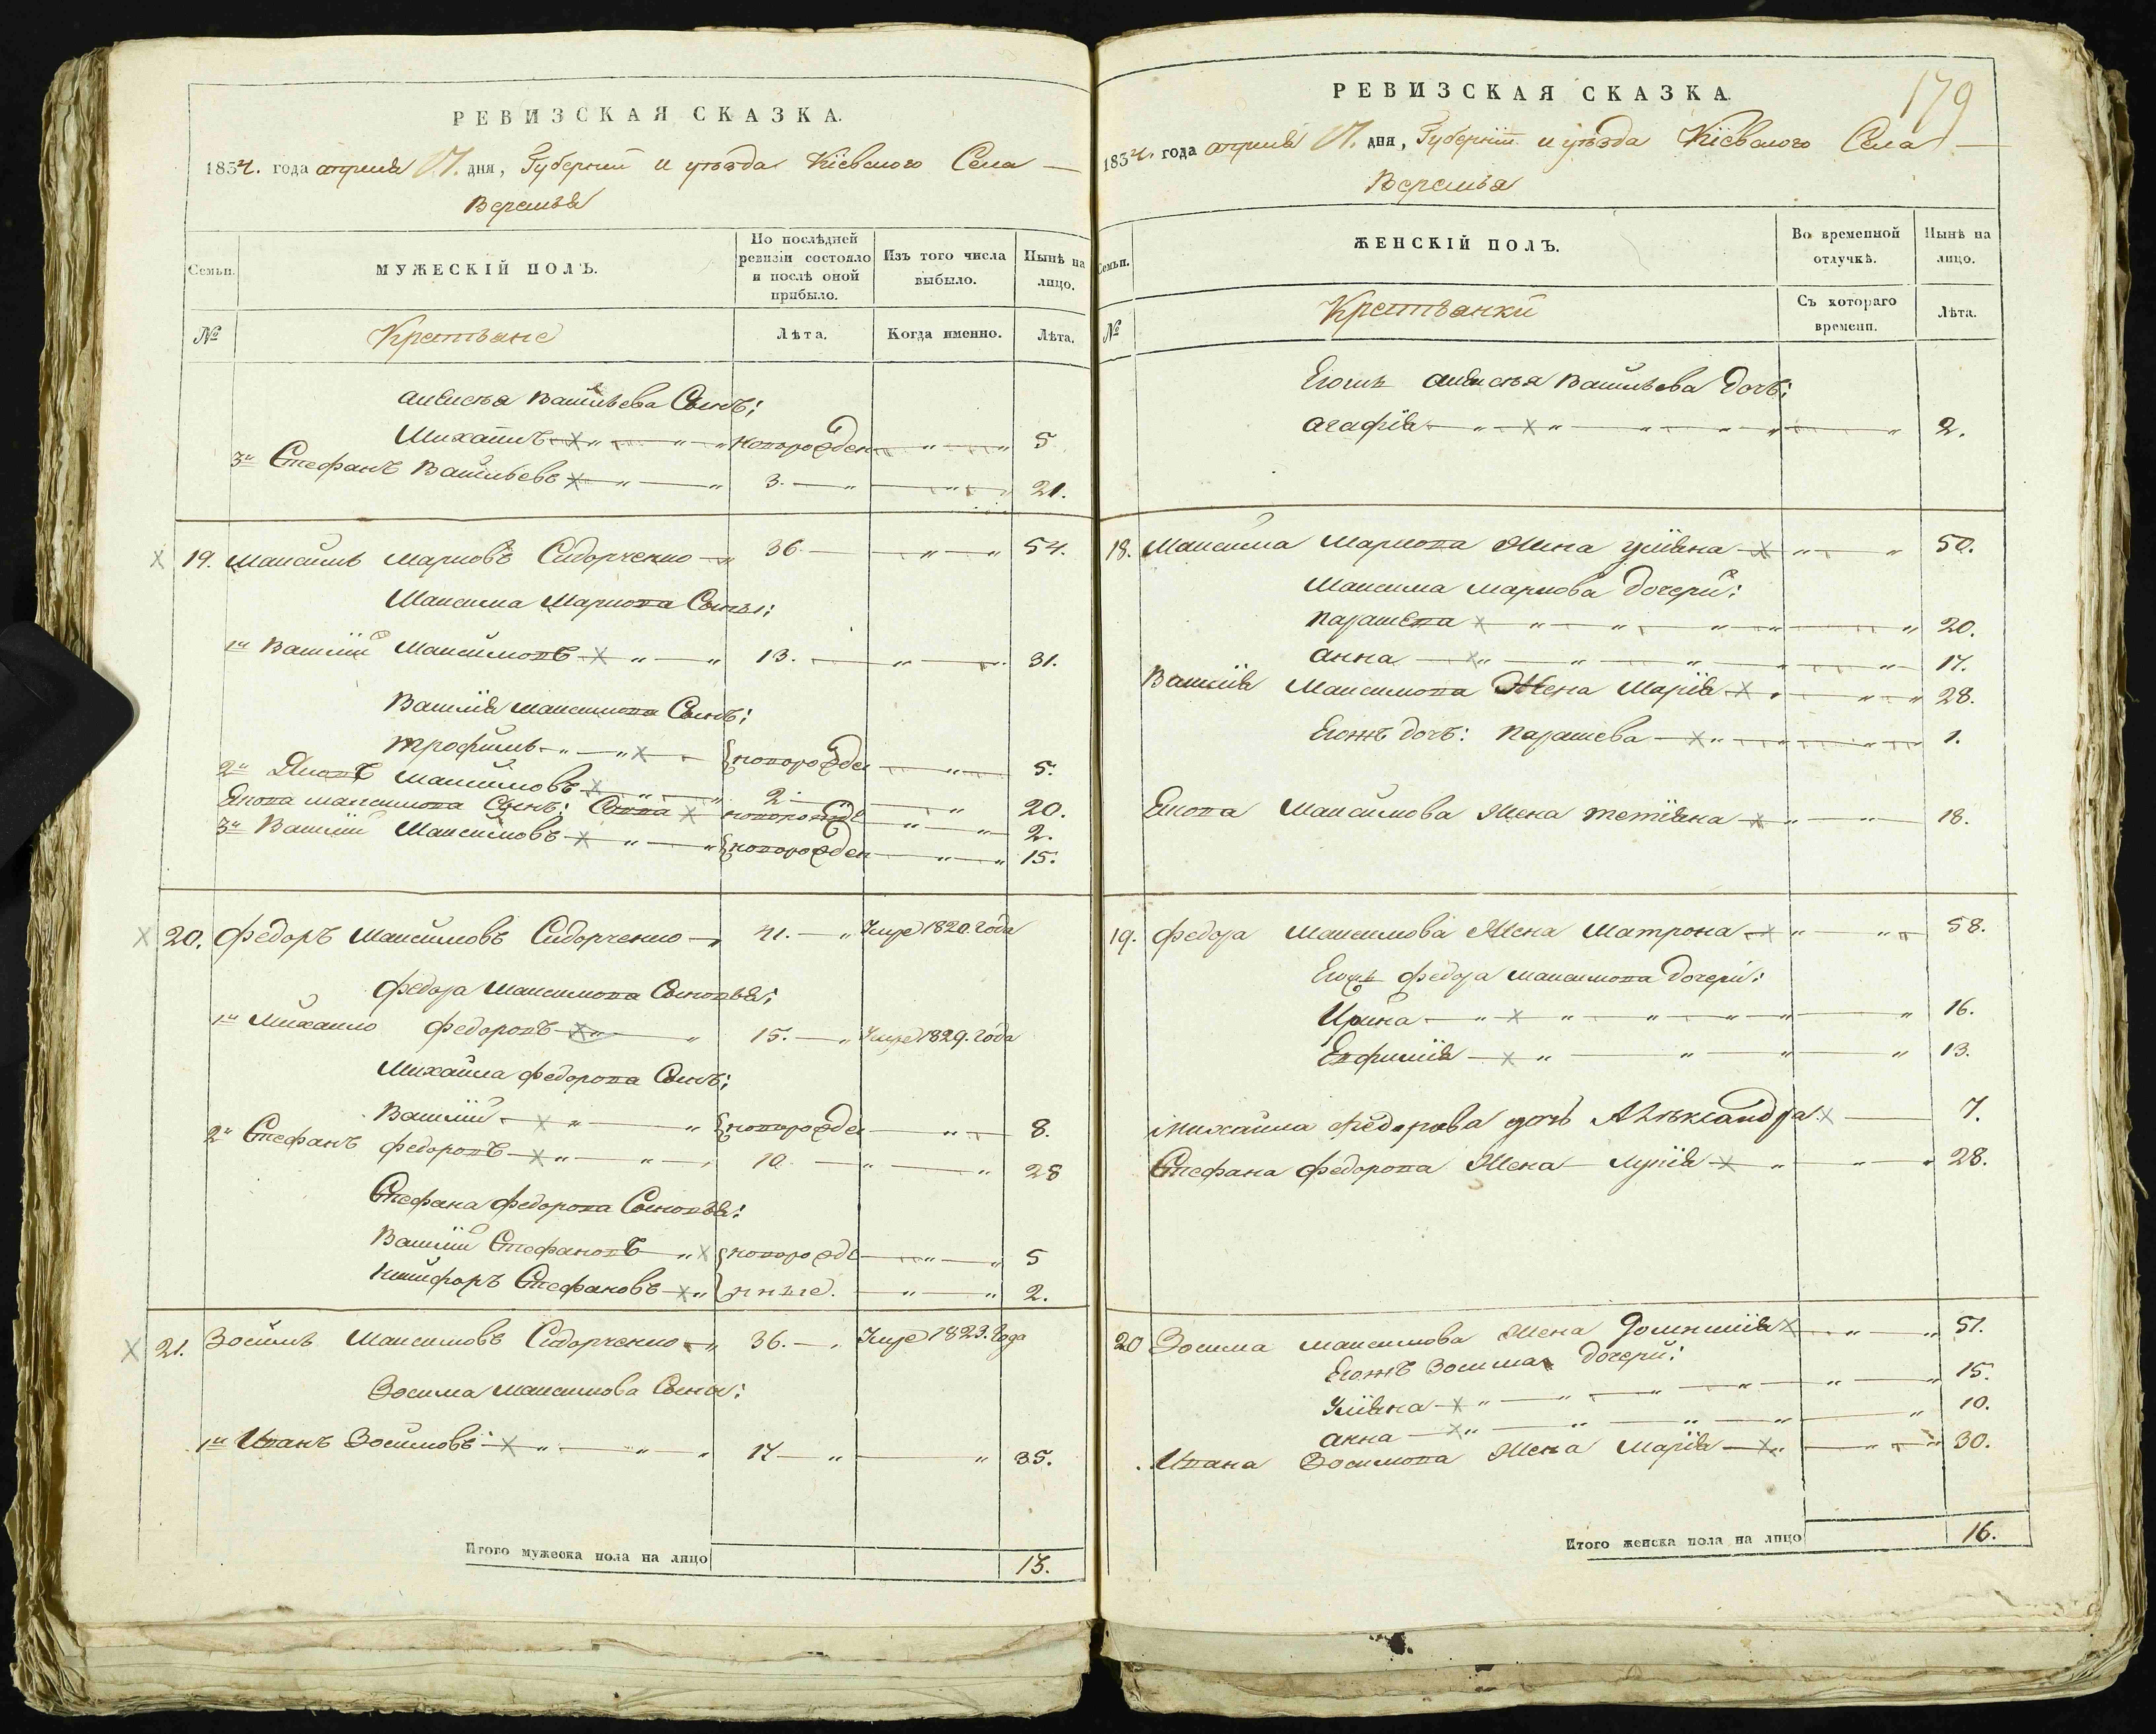 РЕВИЗСКАЯ СКАЗКА.
1834. года апреля 17. дня, Губернiи и уѣзда Кiевского Села
Веремья
Семьи.
МУЖЕСКIЙ ПОЛЪ.
По послѣдней ревизiи состояло и послѣ оной прибыло.
Изъ того числа выбыло.
Нынѣ на лицо.
№
Крестьяне
Лѣта.
Когда именно.
Лѣта.
Васильева Сынъ;
Михаилъ новорожден 5
3й Стефанъ Васильевъ 3. 21.
19. Максимъ Марковъ Сидорченко 36. 54.
Максима Маркова Сыны;
1й Василiй Максимовъ 13. 31.
Василiя Максимова Сынъ;
Трофимъ новорожде 5.
2й Яковъ Максимовъ 2. 20.
Якова Максимова Сынъ; Савва новорожде 2.
3й Василiй Максимовъ новорожден 15.
20. Федоръ Максимовъ Сидорченко 41. Умре 1820. года
Федора Максимова Сыновья;
1й Михайло Федоровъ 15. Умре 1829. года
Михайла Федорова Сынъ;
Василiй новорожде 8.
2й Стефанъ Федоровъ 10. 28
Стефана Федорова Сыновья;
Василiй Стефановъ новорожде 5
Никифоръ Стефановъ нные. 2.
21. Зосимъ Максимовъ Сидорченко 36. Умре 1823. Года
Зосима Максимова Сыны;
1й Иванъ Зосимовъ 17 35.
Итого мужеска пола на лицо 13.
179
РЕВИЗСКАЯ СКАЗКА.
1834. года апреля 17. дня, Губернiи и уѣзда Кiевского Села
Веремья
Семьи.
ЖЕНСКIЙ ПОЛЪ.
Во временной отлучкѣ.
Нынѣ на лицо.
№
Крестьянки
Съ котораго времени.
Лѣта.
Егожъ Васильева Дочь;
Агафiя 2.
18. Максима Маркова Жена Улiяна 50.
Максима Маркова Дочери;
Параскева 20.
Анна 17.
Василiя Максимова Жена Марiя 28.
Егожъ дочь: Параскева 1.
Якова Максимова Жена Тетiяна 18.
19. Федора Максимова Жена Матрона 58.
Егожъ Федора Максимова Дочери:
Ирина 16.
Евфимiя 13.
Михаила Федорова дочь Алѣксандра 7.
Стефана Федорова Жена Лукiя 28.
20 Зосима Максимова Жена Домникiя 51.
Егожъ Зосима Дочери:
Улiяна 15.
Анна 10.
Ивана Зосимова Жена Марiя 30.
Итого женска пола на лицо 16.